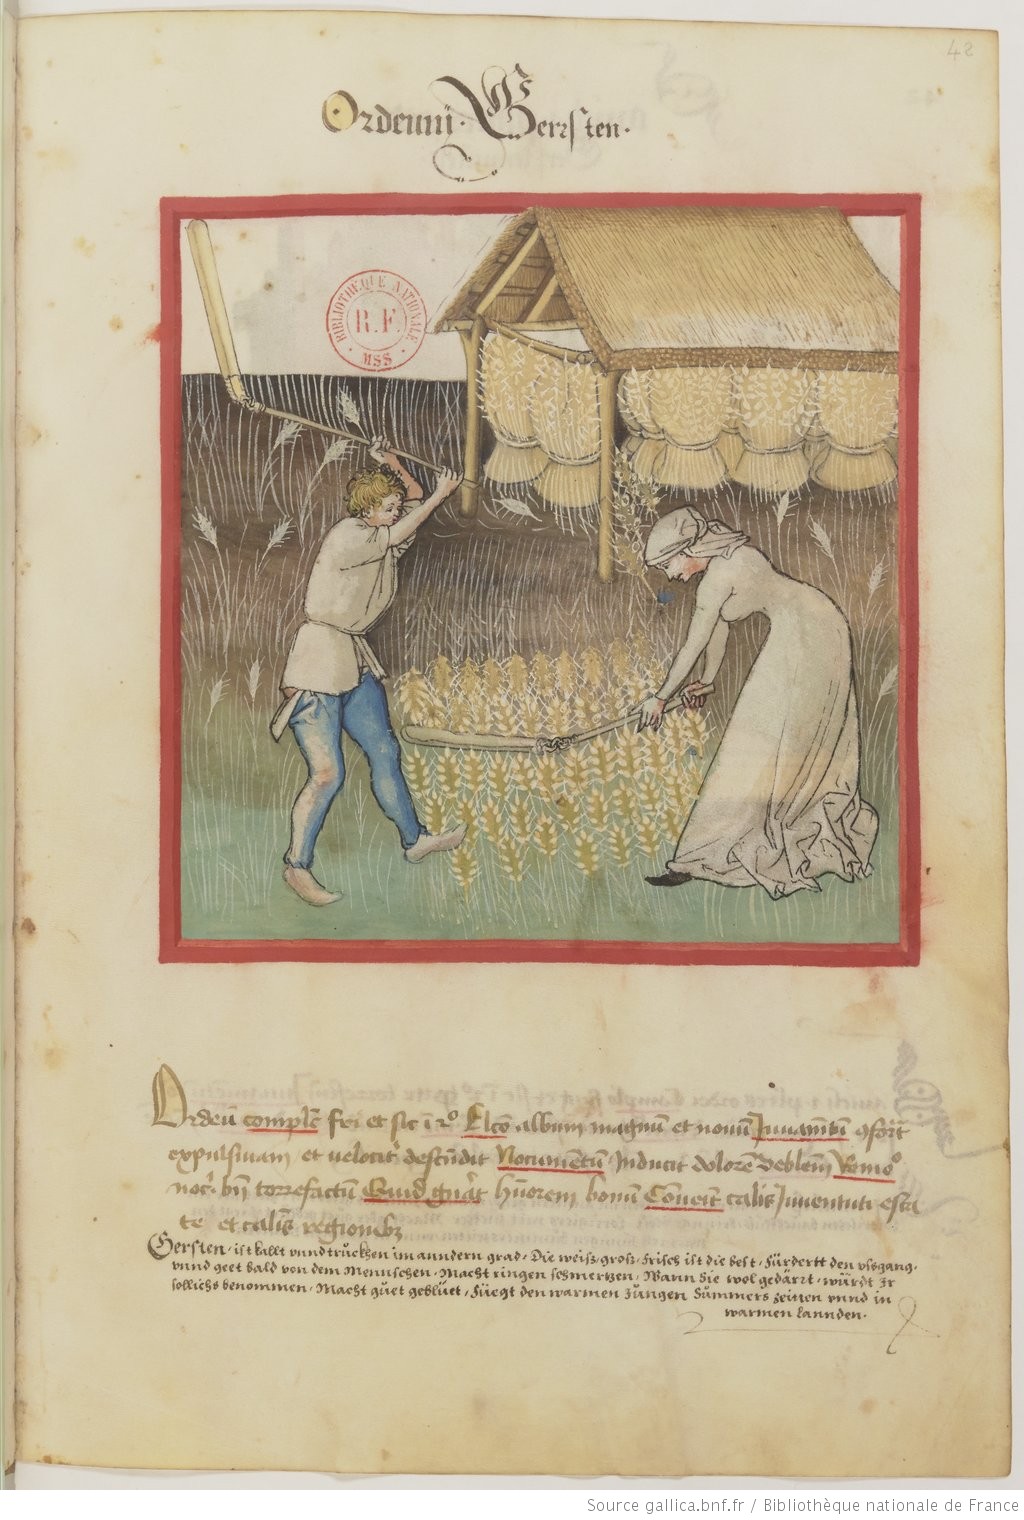 42
Ordeum · Gerrsten ·
BIBLIOTHÈQUE NATIONALE
R.F.
MSS
Ordeū complē frī et sic ī 2º Elcō album magnum et nouū Juuamētū ɔfort
expulsiuam et velocit̄ descēdit Nocumentū Inducit dolorē Remoº
noc̄ torrefactum Quid gn̄āt hūorem bonum Conueīt calis Juventuti esta
te et calis regionibȝ
Gersten · ist kallt vnnd trucken im anndern grad · Die weisz · grosz · frisch ist die best · Fürdertt den vssgang ·
vnnd geet bald von dem Mennschen · Macht ringen schmertzen · Wann Sie wol gedärzt · würdt Ir
sollichs benommen · Macht guet geblüet · Füegt den warmen Jungen Summers zeitten vnnd in
warmen lannden ·
Source gallica.bnf.fr / Bibliothèque nationale de France